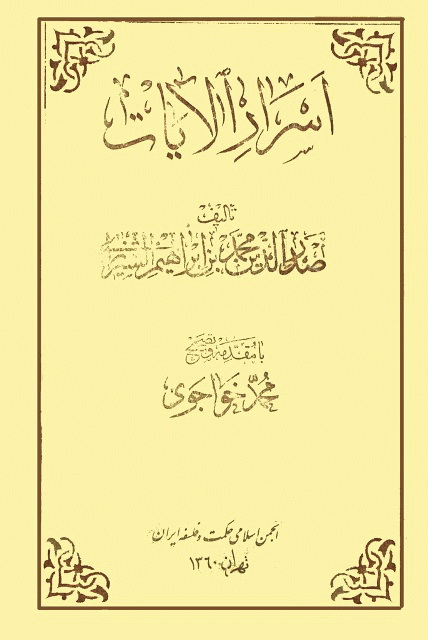 اسرار الآیات
تالیف
صدرالدین محمد بن ابراهیم الشیرازی
با مقدمه و تصحیح
محمد خواجوی
انجمن اسلامی حکمت و فلسفه ایران
تهران ۱۳۶۰